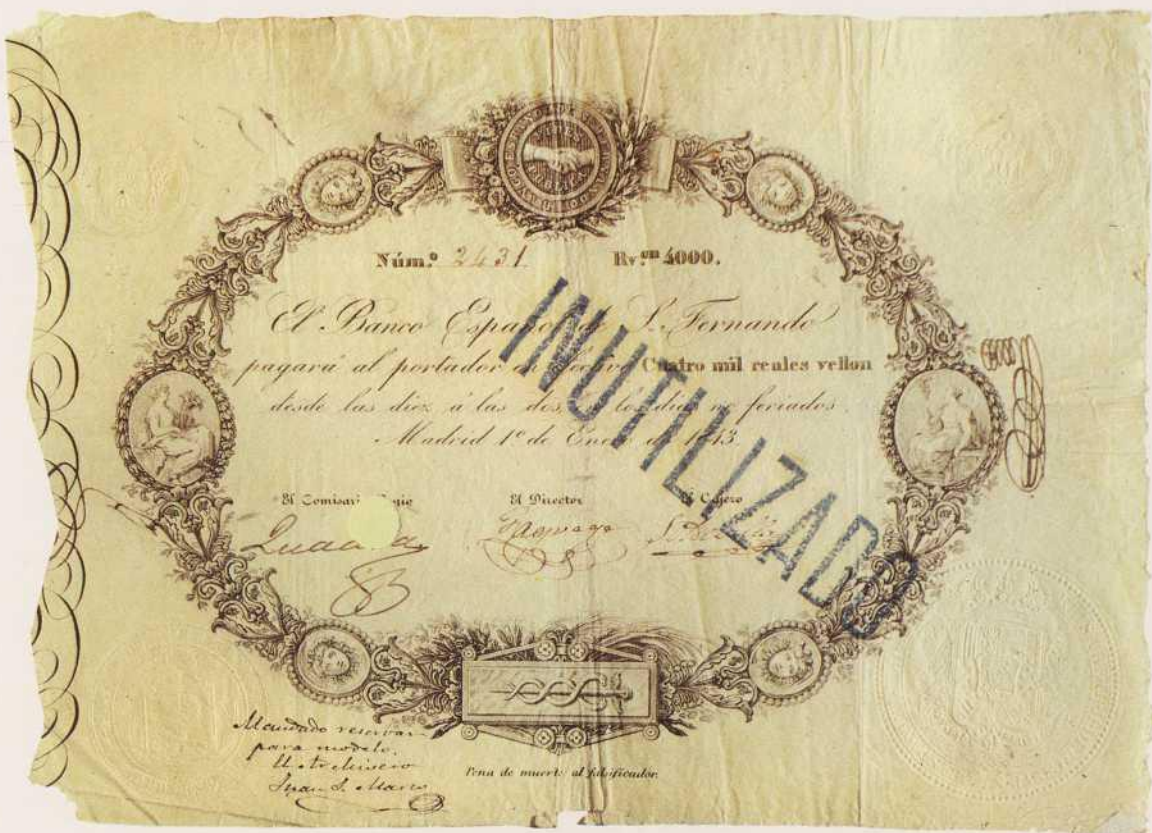 Núm.º 2431 Rv.ᵒⁿ 4000.
El Banco Español de S. Fernando
pagará al portador en efectivo Cuatro mil reales vellon
desde las diez á las dos, los dias no feriados.
Madrid 1º de Enero de 1843.
El Comisario Regio El Director El Cajero
INUTILIZADO
Mandado reservar
para modelo.
El Archivero
Juan
Pena de muerte al falsificador.